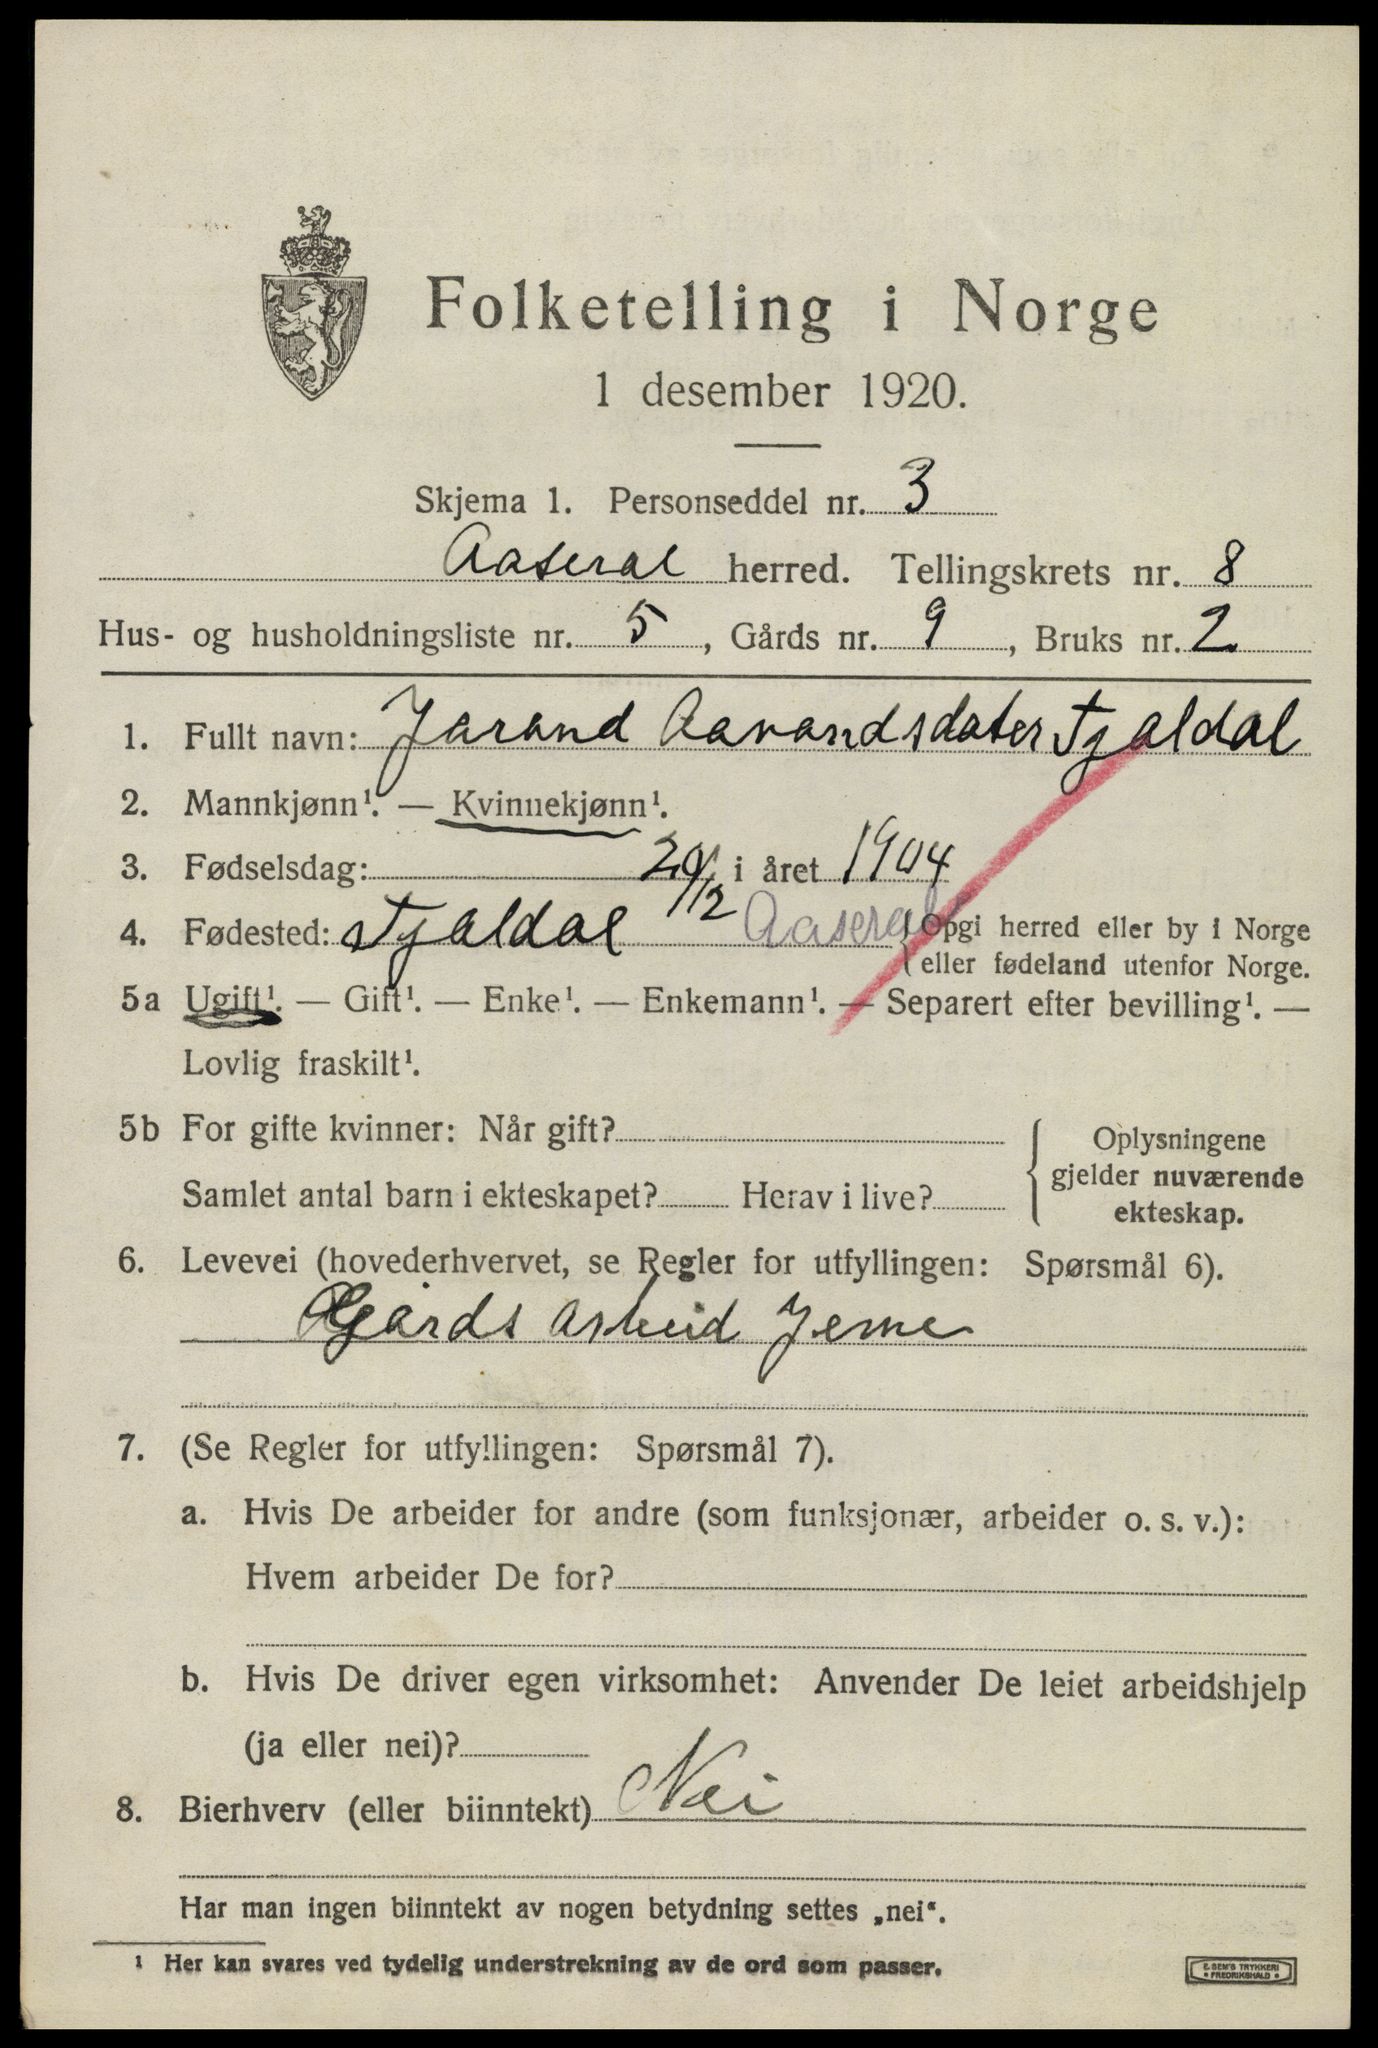 Folketelling i Norge
1 desember 1920.
Skjema 1. Personseddel nr. 3
Aaseral herred. Tellingskrets nr. 8
Hus- og husholdningsliste nr. 5, Gårds nr. 9, Bruks nr. 2
1. Fullt navn: Jarand Aavandsdater Tjaldal
2. Mannkjønn¹. — Kvinnekjønn¹.
3. Fødselsdag: 29/12 i året 1904
4. Fødested: Tjaldal Aaseral {Opgi herred eller by i Norge
eller fødeland utenfor Norge.
5a Ugift¹. — Gift¹. — Enke¹. — Enkemann¹. — Separert efter bevilling¹. —
Lovlig fraskilt¹.
5b For gifte kvinner: Når gift?
Samlet antal barn i ekteskapet? Herav i live?
{ Oplysningene
gjelder nuværende
ekteskap.
6. Levevei (hovederhvervet, se Regler for utfyllingen: Spørsmål 6).
Gjårds arbeid Jeme
7. (Se Regler for utfyllingen: Spørsmål 7).
a. Hvis De arbeider for andre (som funksjonær, arbeider o. s. v.):
Hvem arbeider De for?
b. Hvis De driver egen virksomhet: Anvender De leiet arbeidshjelp
(ja eller nei)?
8. Bierhverv (eller biinntekt) Nei
Har man ingen biinntekt av nogen betydning settes „nei“.
¹ Her kan svares ved tydelig understrekning av de ord som passer.
E. SEM'S TRYKKERI
• FREDRIKSHALD •